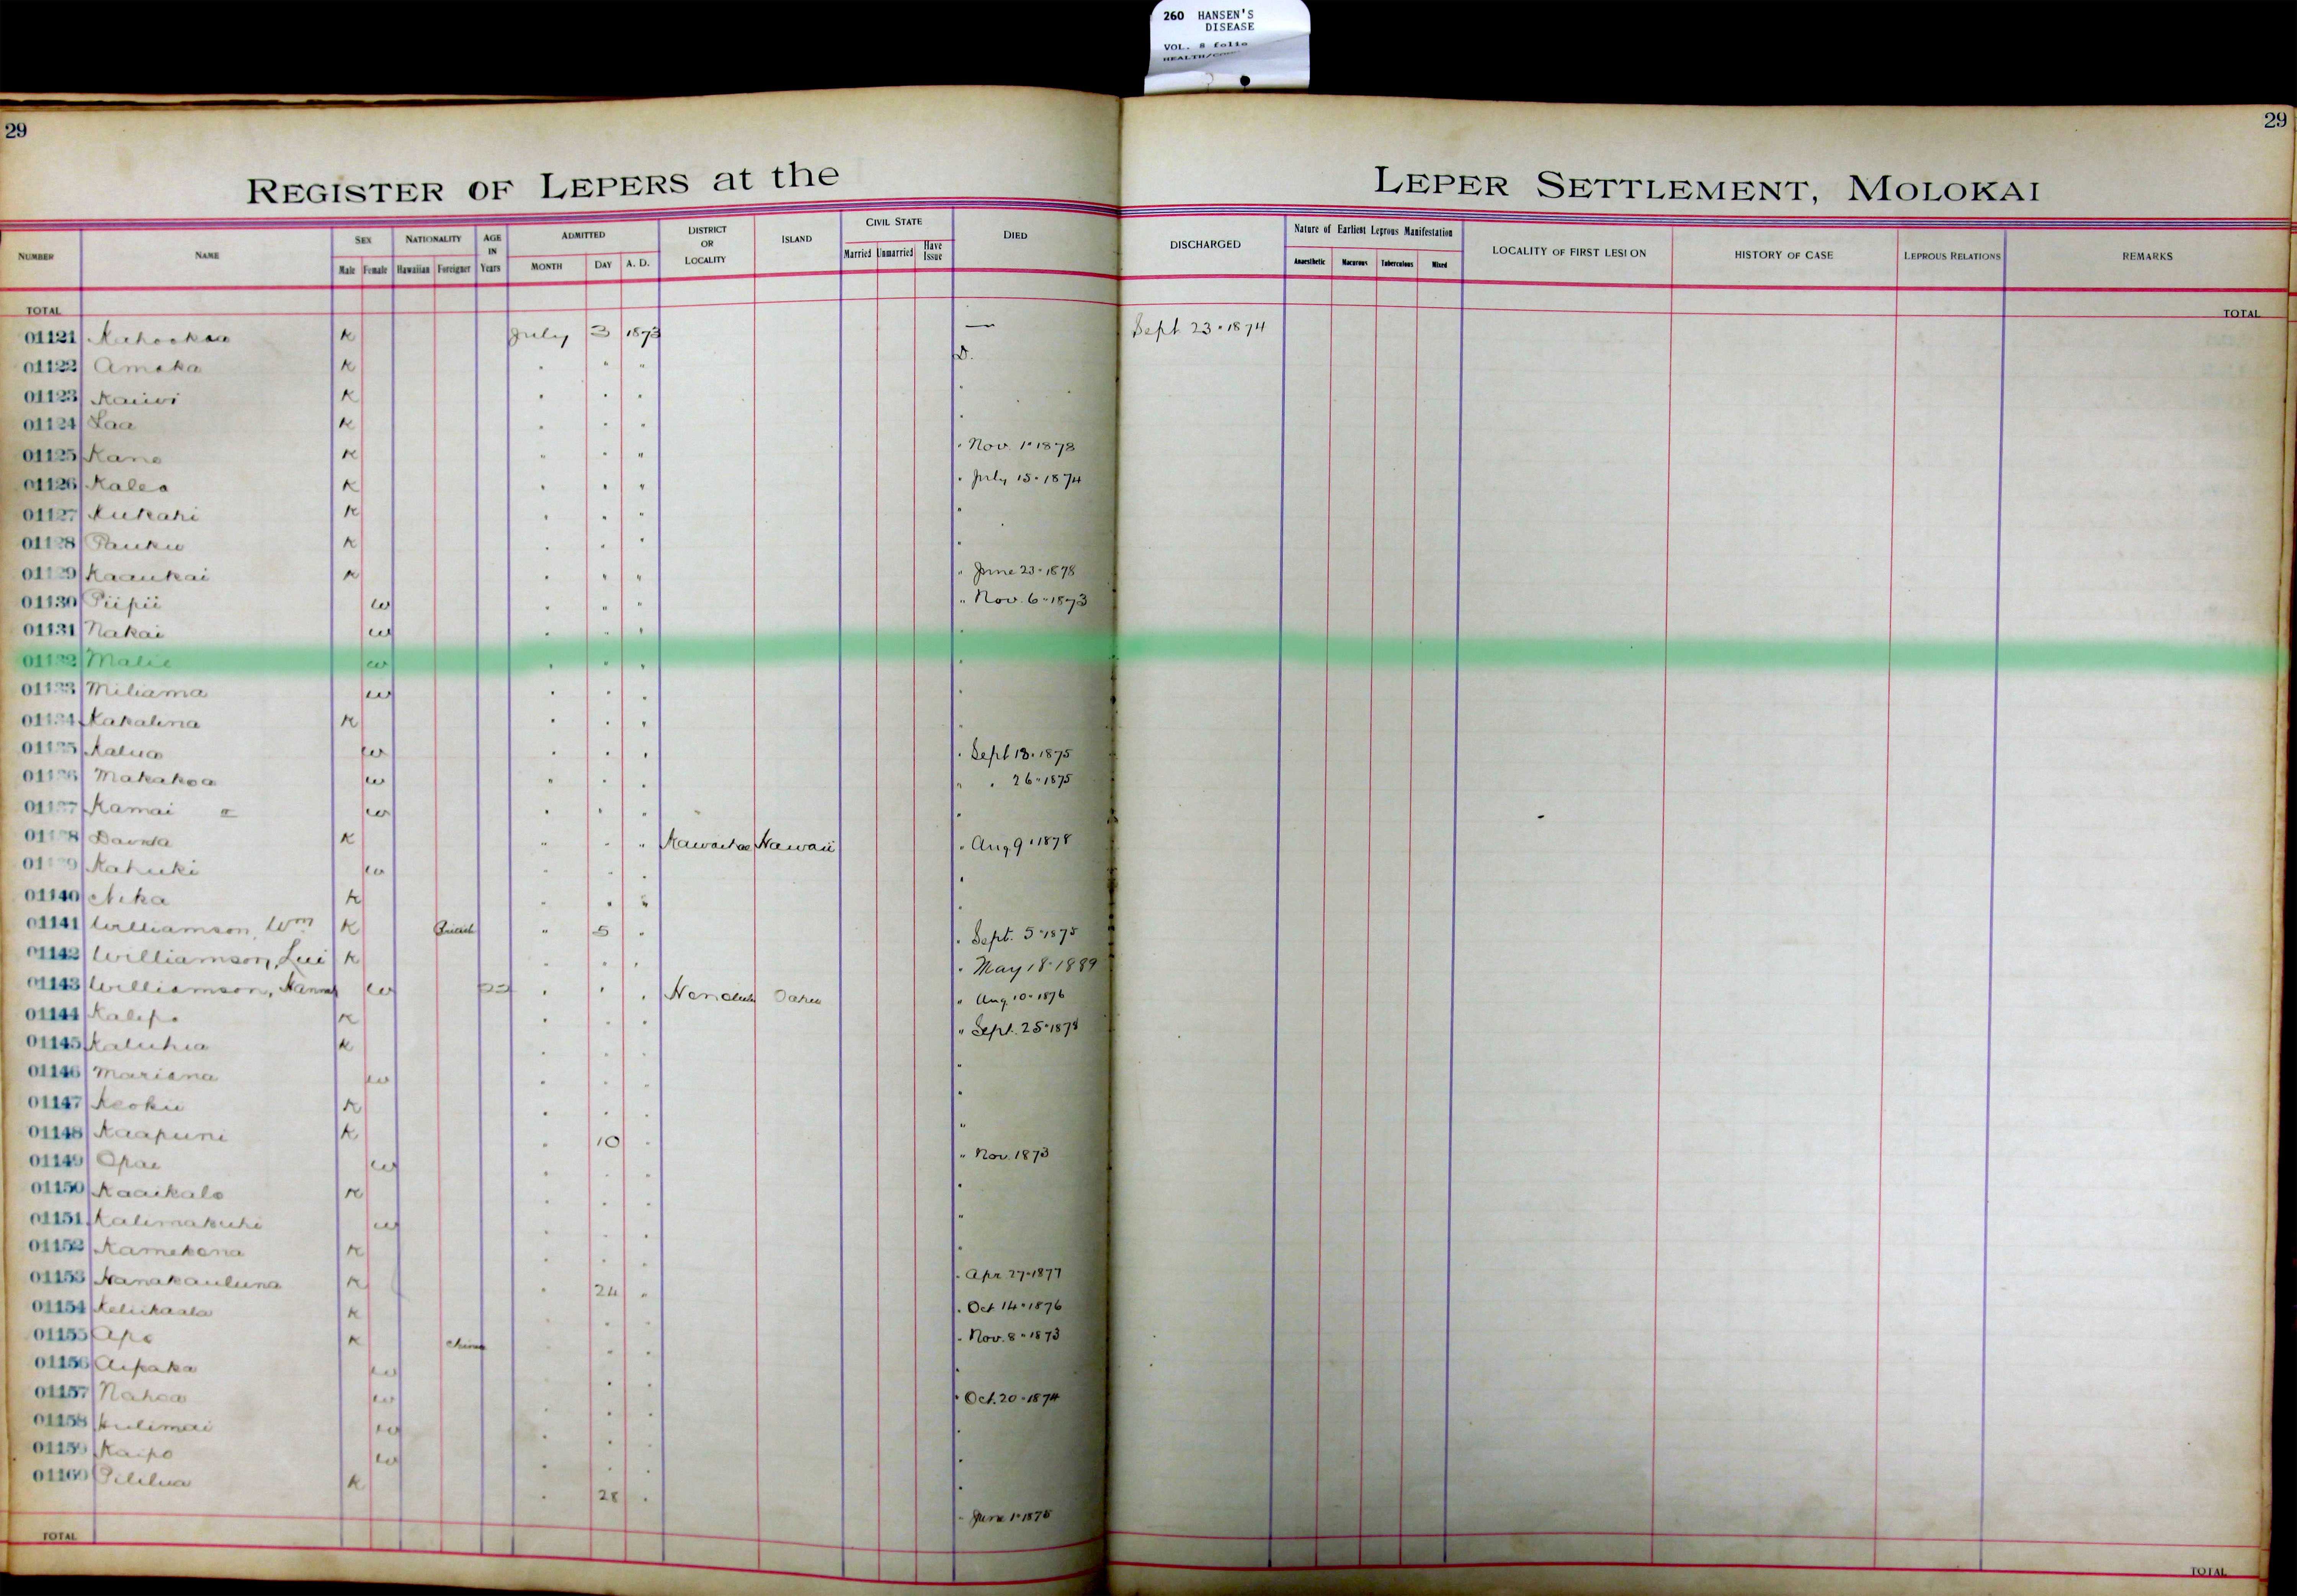 260 HANSEN'S
DISEASE
VOL. 8 folio
29
29
REGISTER OF LEPERS at the LEPER SETTLEMENT, MOLOKAI
NUMBER NAME SEX NATIONALITY AGE IN Years ADMITTED DISTRICT OR LOCALITY ISLAND CIVIL STATE DIED DISCHARGED Nature of Earliest Leprous Manifestation LOCALITY OF FIRST LESION HISTORY OF CASE LEPROUS RELATIONS REMARKS
Male Female Hawaiian Foreigner MONTH DAY A. D. Married Unmarried Have Issue Anaesthetic Macurous Tuberculous Mixed
TOTAL TOTAL
01121 K July 3 1873 — Sept 23 " 1874
01122 Amaka K " " " D.
01123 Kaiwi K " " " "
01124 Laa K " " " "
01125 Kane K " " " " Nov. 1 " 1878
01126 Kalea K " " " " July 15 " 1874
01127 Kukahi K " " " "
01128 Pauku K " " " "
01129 Kaaukai K " " " " June 23 " 1878
01130 Piipii w " " " " Nov. 6 " 1873
01131 Nakai w " " " "
01132 Malie w " " " "
01133 Miliama w " " " "
01134 Kakalina K " " " "
01135 Kalua w " " " " Sept 18 " 1875
01136 Makakoa w " " " " " 26 " 1875
01137 Kamai w " " " "
01138 K " " " Kawaihae Hawaii " Aug 9 " 1878
01139 Kahuki w " " " "
01140 Nika K " " " "
01141 Williamson, Wm K British " 5 " " Sept. 5 " 1875
01142 Williamson, Lui K " " " " May 18 " 1889
01143 Williamson, Hannah w " " " Honolulu Oahu " Aug. 10 " 1876
01144 Kalepo K " " " " Sept. 25 " 1878
01145 Kaluhia K " " " "
01146 Mariana w " " " "
01147 Keoku K " " " "
01148 Kaapuni K " 10 " "
01149 Opae w " " " " Nov. 1873
01150 Kaaikalo K " " " "
01151 Kalimakuhi w " " " "
01152 Kamekona K " " " "
01153 Nanakauluna K " 24 " " Apr 27 " 1877
01154 Keliikaala K " " " Oct 14 " 1876
01155 Apo K China " " " Nov. 8 " 1873
01156 Aipaka w " " " "
01157 Nahoa w " " " " Oct. 20 " 1874
01158 Hulimai w " " " "
01159 Kaipo w " " " "
01160 Pililua K " 28 " " June 1 " 1875
TOTAL TOTAL